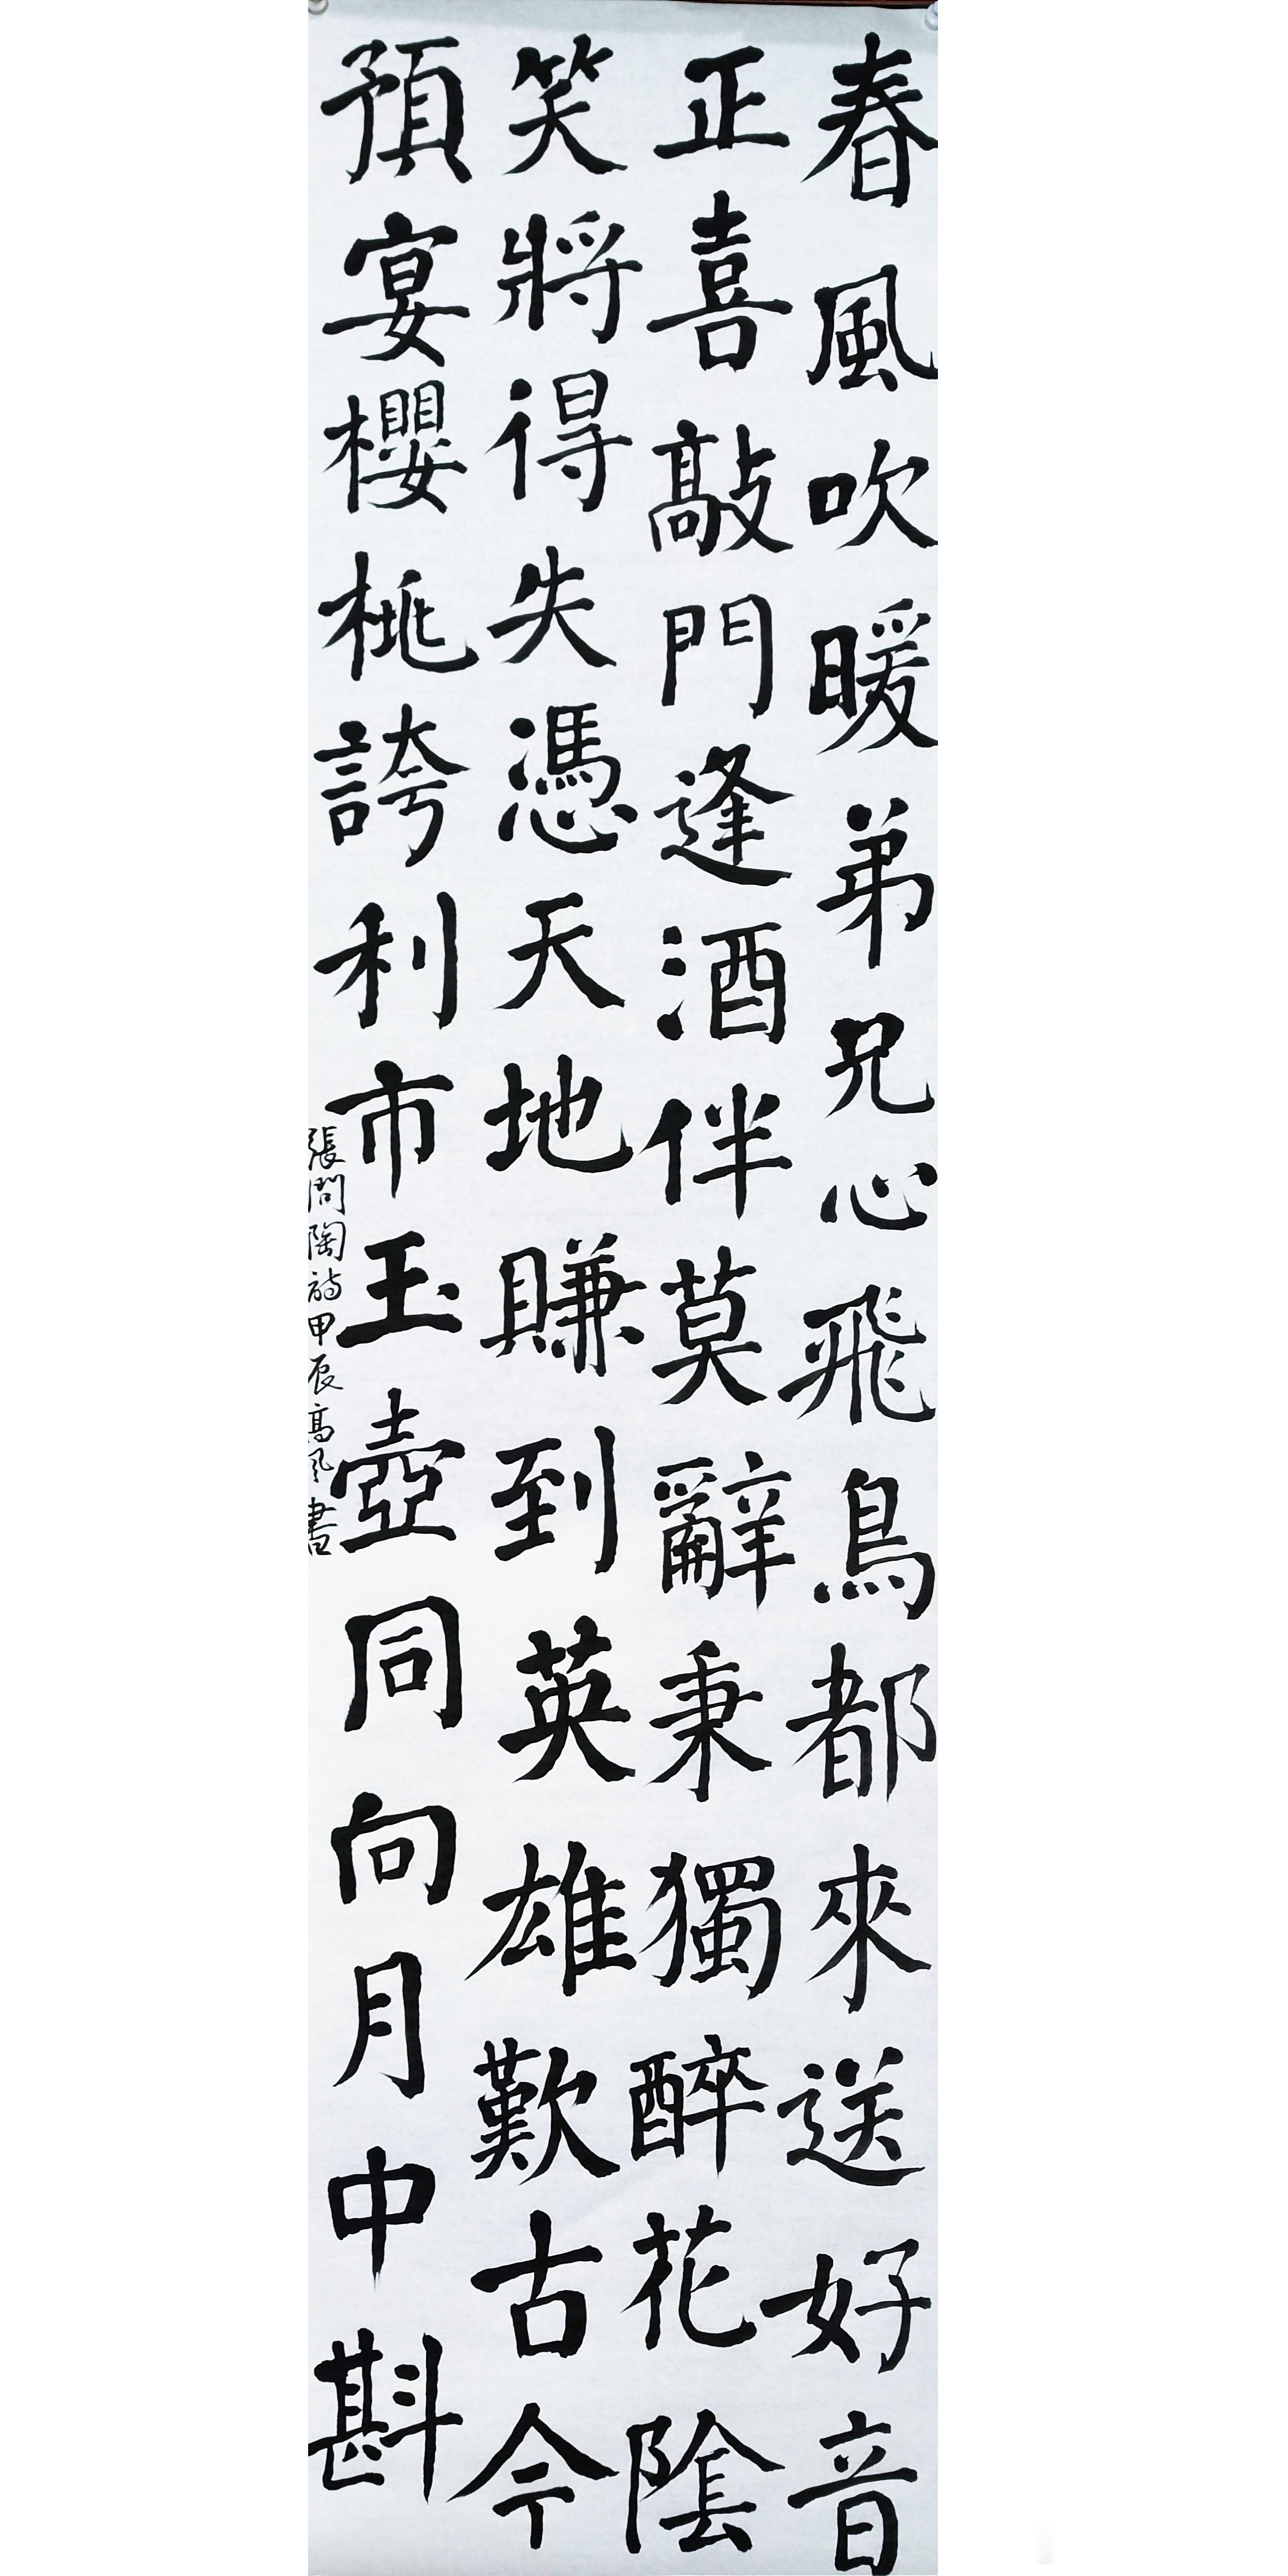 春風吹暖弟兄心飛鳥都來送好音
正喜敲門逢酒伴莫辭秉獨醉花陰
笑將得失憑天地賺到英雄歎古今
預宴櫻桃誇利市玉壺同向月中斟
張問陶詩甲辰高風書